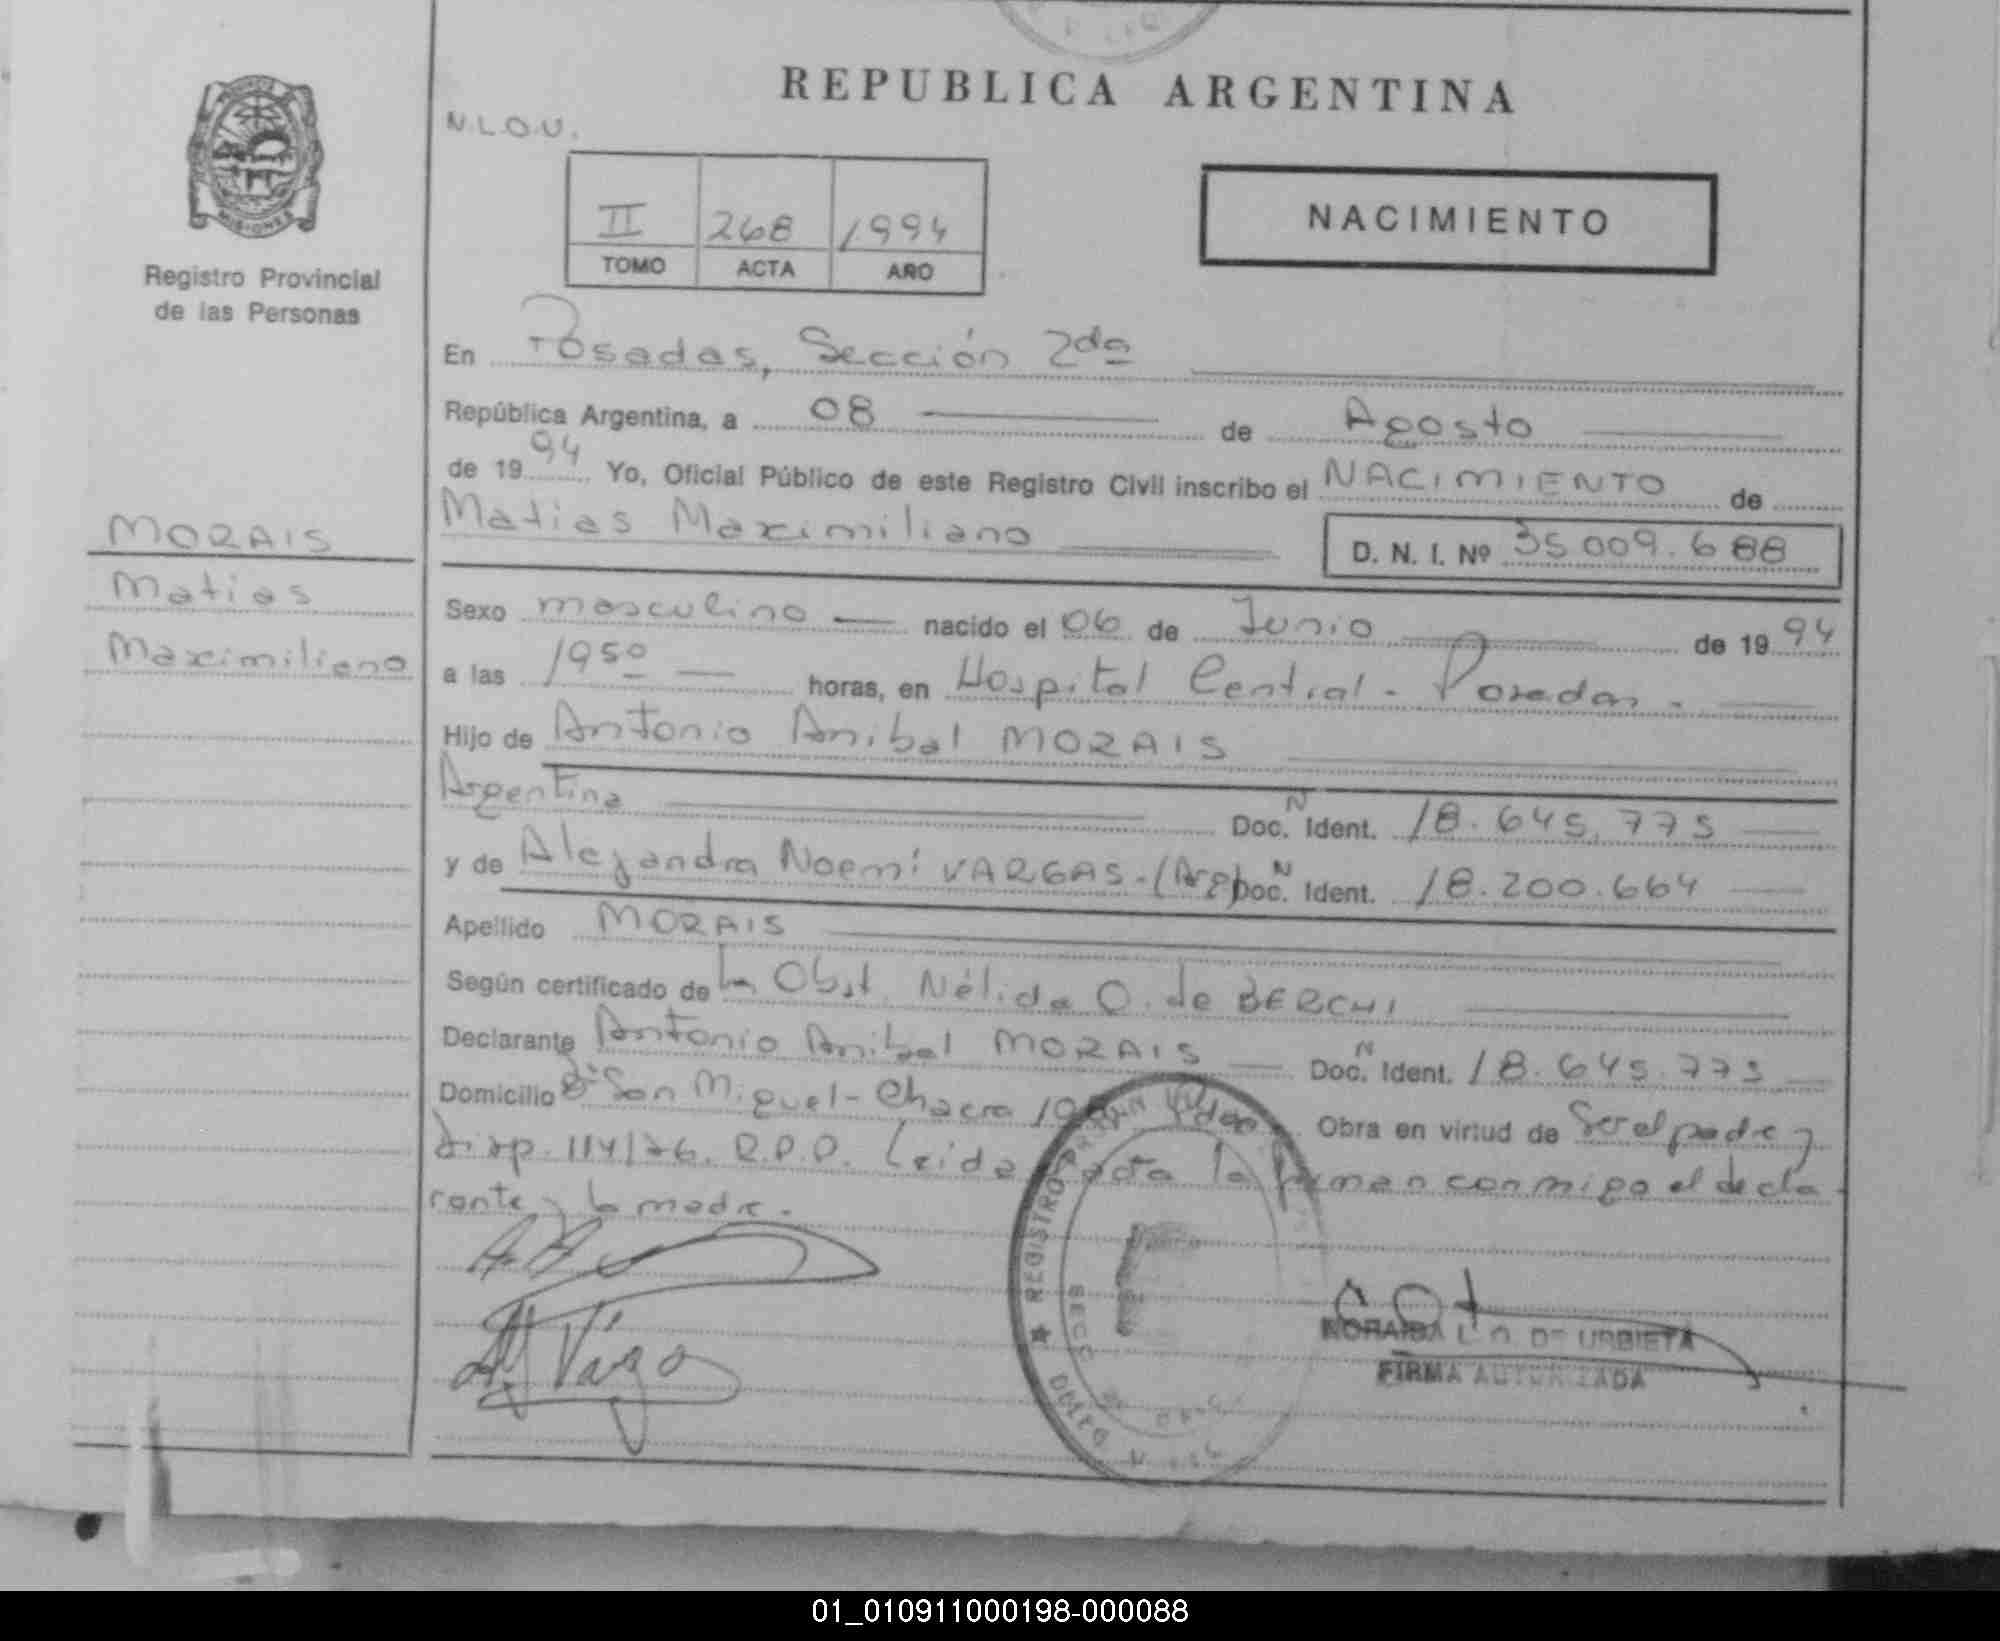 REPUBLICA ARGENTINA
N.L.O.U.
II 268 1994
TOMO ACTA AÑO
NACIMIENTO
MISIONES
Registro Provincial
de las Personas
En Posadas, Sección 2da
República Argentina, a 08 de Agosto
de 1994 Yo, Oficial Público de este Registro Civil inscribo el NACIMIENTO de
Matias Maximiliano D. N. I. Nº 35.009.688
MORAIS
Matias
Maximiliano
Sexo masculino nacido el 06 de Junio de 1994
a las 1950 horas, en Hospital Central - Posadas.
Hijo de Antonio Anibal MORAIS
Argentina Doc. N Ident. 18.645.775
y de Alejandra Noemi VARGAS-(Arg) Doc. N Ident. 18.200.664
Apellido MORAIS
Según certificado de la Obst. Nélida O. de BERCHI
Declarante Antonio Anibal MORAIS Doc. N Ident. 18.645.775
Domicilio Bº San Miguel - Chacra Obra en virtud de Ser el padre y
disp. 114/76. R.P.P. Leida acta la firman conmigo el decla
rante y la madre.
REGISTRO
SECC
NORAIDA L. O. DE URBIETA
FIRMA AUTORIZADA
01_010911000198-000088